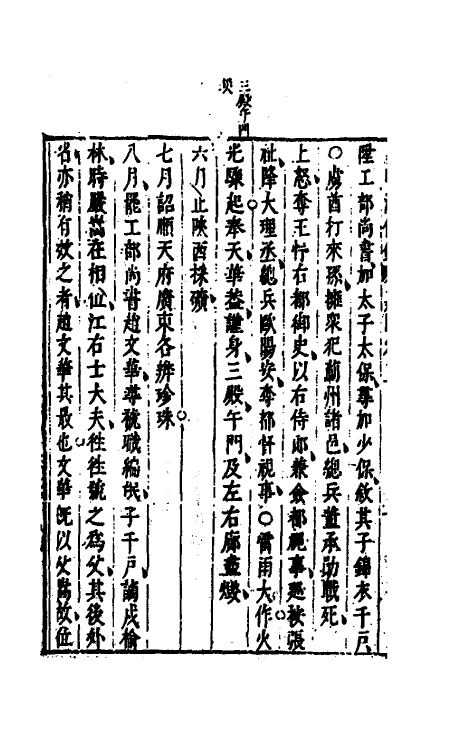 三殿午門
災
陞工部尚書加太子太保尋加少保敘其子錦衣千戶
○虜酋打來孫擁衆犯薊州諸邑總兵蔣承勛戰死
上怒奪王忬右都御史以右侍郎兼僉都視事巡按張
祉降大理丞總兵歐陽安奪都督視事○雷雨大作火
光驟起奉天華蓋謹身三殿午門及左右廊盡燬
六月止陝西採礦
七月詔順天府廣東各辦珍珠
八月罷工部尚書趙文華尋褫職編氓子千戶謫戍榆
林時嚴嵩在相位江右士大夫徃徃號之為父其後外
省亦稍有效之者趙文華其最也文華旣以父嵩故位